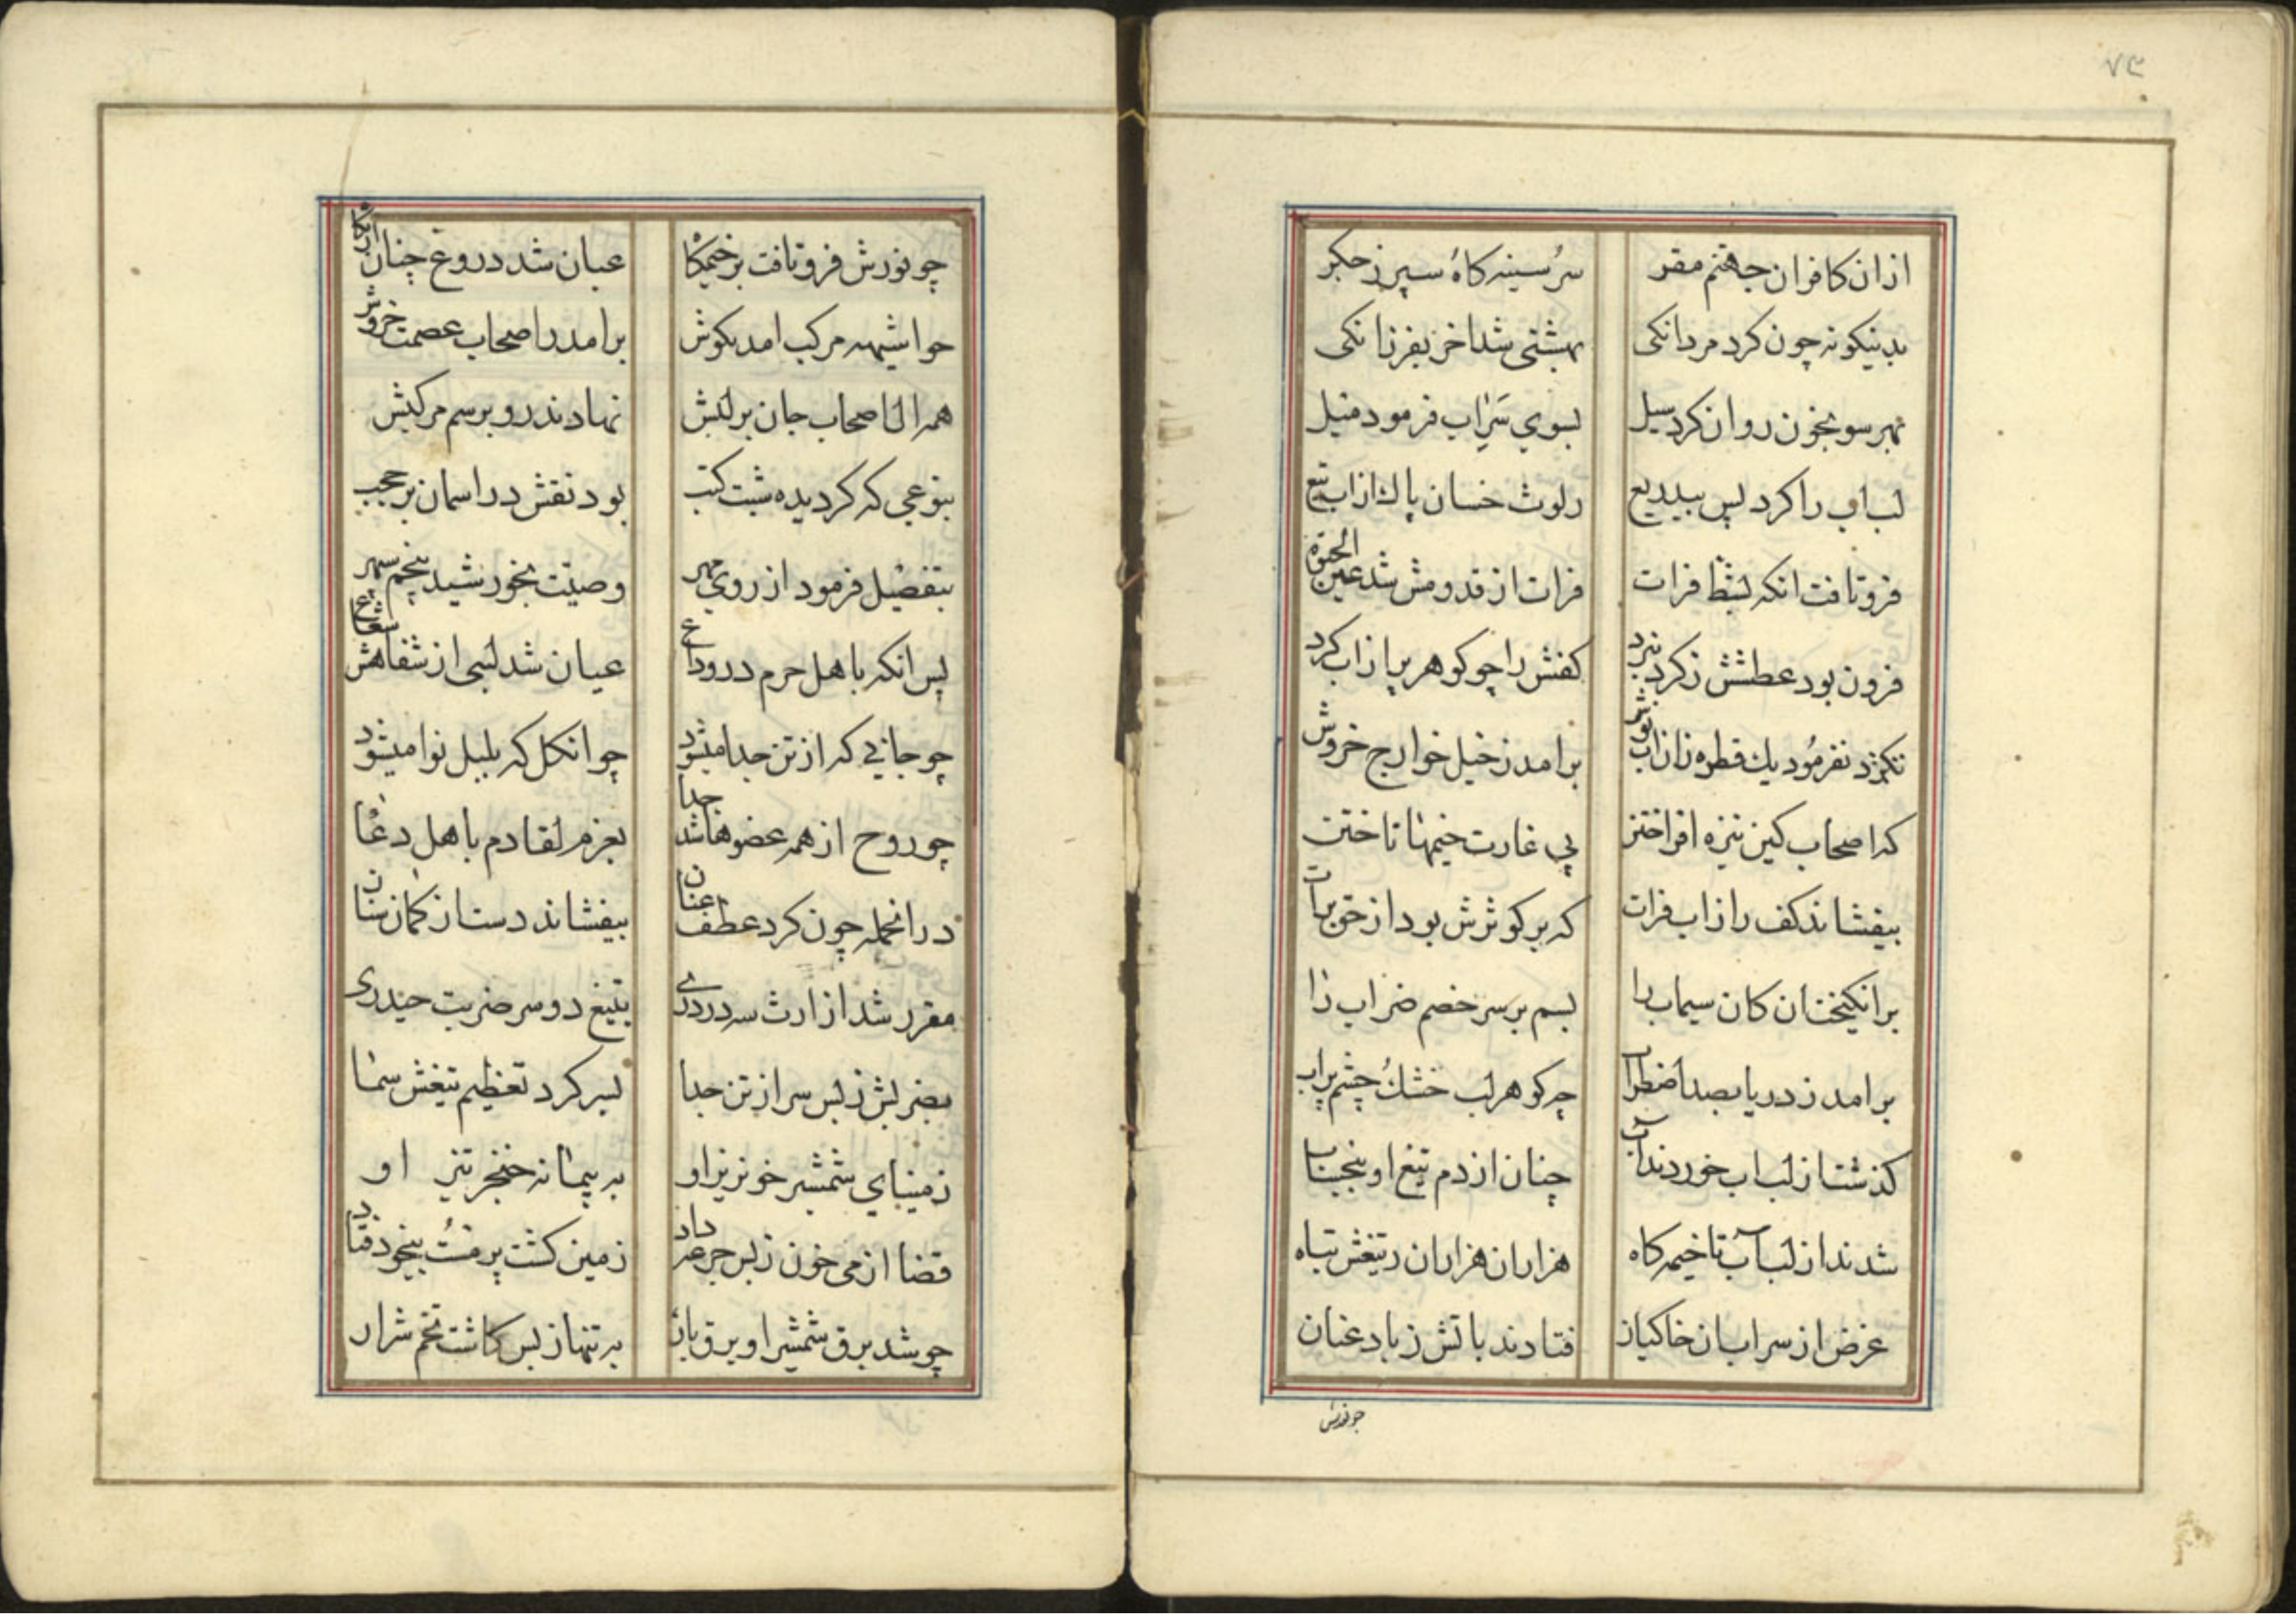 ۷۳
ازان کافران جهنم مقر سر سینه کاه سپر زجکر
بدینکونه چون کرد مردانکی بهشتی شد اخر بفرزانکی
بهر سو بخون روان کرد سیل بسوی سراب فرمود میل
لب اب را کرد پس بیدریع رلوث خسان پاك از اب تیغ
فروتافت انکه لبشط فرات فرات از قدومش شد عین الحیوة
فزون بود عطشش زکرد نبرد کفش را چو کوهر پر از اب کرد
نکرد نفرمود یك قطره زان اب نوش برامد ز خیل خوارج خروش
که اصحاب کین نیزه افراختن پی غارت خیمها تاختن
بیفشاند کف را ز اب فرات که بر کوثرش بود از حق برات
برانکیخت ان کان سیماب را بسم بر سر خصم ضراب را
برامد ز دریا بصد اضطراب چه کوهر لب خشك چشم پراب
کذشت از لب اب خوردند اب چنان از دم تیغ او بنجیناب
شدند از لب آب تا خیمه کاه هزاران هزاران زتیغش تباه
غرض از سر ابان خاکیان فتادند باتش زباد عنان
چو نورش
چو نورش فروتافت بر خیمکاه عیان شد دروغ چنان ازنکاه
چوا شیهه مرکب امد بکوش برامد ز اصحاب عصمت خروش
همه ال اصحاب جان بر لبش نهادند رو بر سم مرکبش
بنوعی که کردیده ثبت کتب بود نقش در اسمان بر عجب
بتفضیل فرمود از روی مهر وصیت بخورشید پنجم سپهر
پس انکه باهل حرم در وداع عیان شد لبی از شفاهش شعاع
چو جانی که از تن جدا میشود چو انکل که بلبل نوا میشود
چو روح از همه عضوها شد جدا بعزم لقا دم باهل دغا
در انحمله چون کرد عطف عنان بیفشاند دست از کمان سنان
مقرر شد از ارث سردردری بتیغ دوسر ضربت حیدری
بضربش ز بس سر از تن جدا بسر کرد تعظیم تیغش سما
زمینای شمشیر خونریز او به پیمانه خنجر تیز او
قضا از می خون ز بس جرعه داد زمین کشت پر مست بیخود فتاد
چو شد برق شمشیر او برق بار به تنها ز بس کاشت تخم شرار